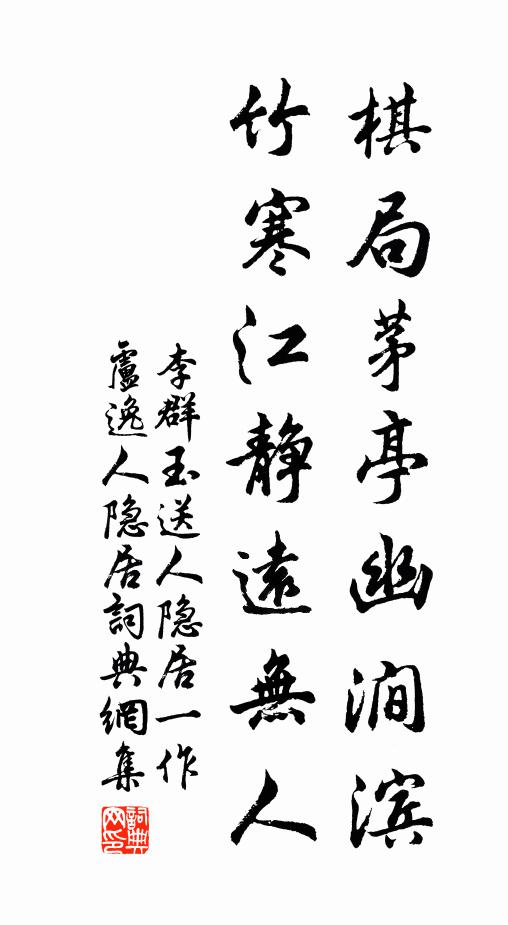 棋局茅亭幽涧滨
竹寒江静远無人
李群玉送人隐居一作
盧逸人隐居詞典網集
詞典网印